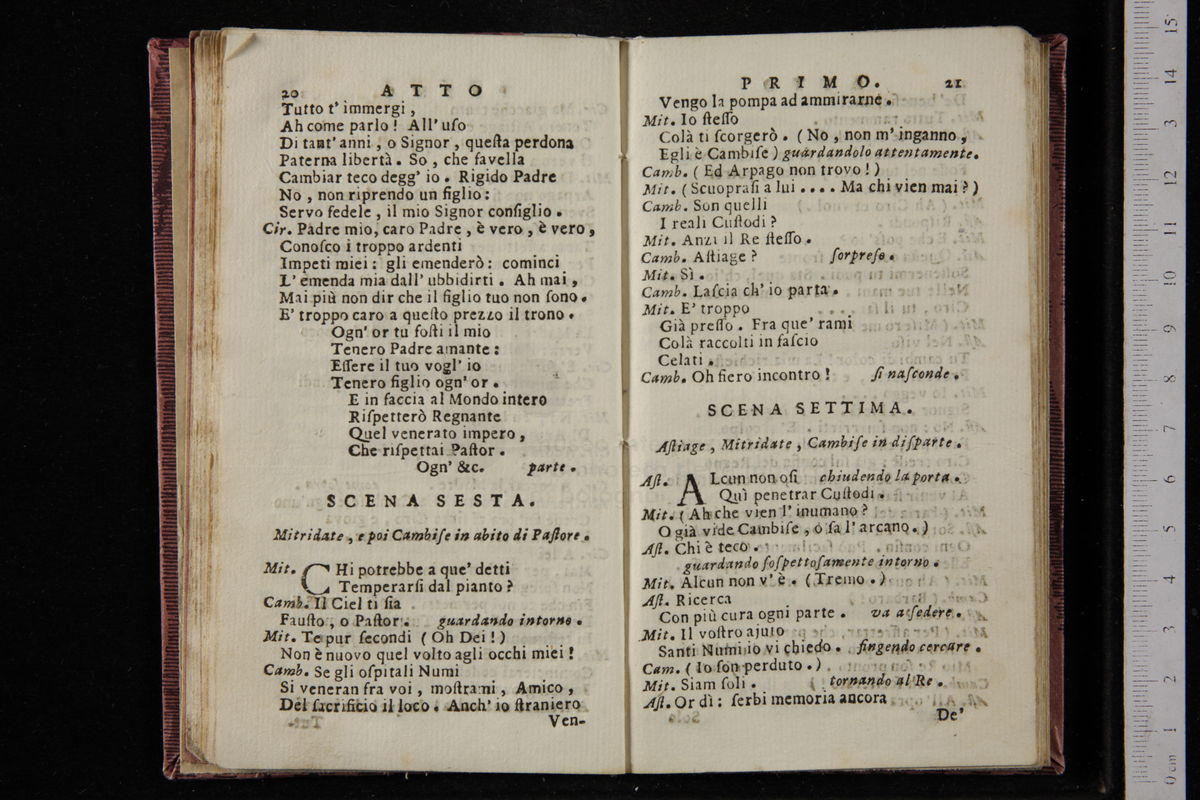 20 ATTO
Tutto t' immergi,
Ah come parlo! All' uſo
Di tant' anni, o Signor, queſta perdona
Paterna libertà. So, che favella
Cambiar teco degg' io. Rigido Padre
No, non riprendo un figlio:
Servo fedele, il mio Signor conſiglio.
Cir. Padre mio, caro Padre, è vero, è vero,
Conoſco i troppo ardenti
Impeti miei: gli emenderò: cominci
L' emenda mia dall' ubbidirti. Ah mai,
Mai più non dir che il figlio tuo non ſono.
E' troppo caro a queſto prezzo il trono.
Ogn' or tu foſti il mio
Tenero Padre amante:
Eſſere il tuo vogl' io
Tenero figlio ogn' or.
E in faccia al Mondo intero
Riſpetterò Regnante
Quel venerato impero,
Che riſpettai Paſtor.
Ogn' &c. parte.
SCENA SESTA.
Mitridate, e poi Cambiſe in abito di Paſtore.
Mit. CHi potrebbe a que' detti
Temperarſi dal pianto?
Camb. Il Ciel ti ſia
Fauſto, o Paſtor. guardando intorno.
Mit. Te pur ſecondi (Oh Dei!)
Non è nuovo quel volto agli occhi miei!
Camb. Se gli oſpitali Numi
Si veneran fra voi, moſtrami, Amico,
Del ſacrificio il loco. Anch' io ſtraniero
Ven-
PRIMO. 21
Vengo la pompa ad ammirarne.
Mit. Io ſteſſo
Colà ti ſcorgerò. (No, non m' inganno,
Egli è Cambiſe) guardandolo attentamente.
Camb. (Ed Arpago non trovo!)
Mit. (Scuopraſi a lui.... Ma chi vien mai?)
Camb. Son quelli
I reali Cuſtodi?
Mit. Anzi il Re ſteſſo.
Camb. Aſtiage? ſorpreſo.
Mit. Sì.
Camb. Laſcia ch' io parta.
Mit. E' troppo
Già preſſo. Fra que' rami
Colà raccolti in faſcio
Celati.
Camb. Oh fiero incontro! ſi naſconde.
SCENA SETTIMA.
Aſtiage, Mitridate, Cambiſe in diſparte.
Aſt. ALcun non oſi chiudendo la porta.
Quì penetrar Cuſtodi.
Mit. (Ah che vien l' inumano?
O già vide Cambiſe, ó ſa l' arcano.)
Aſt. Chi è teco.
guardando ſoſpettoſamente intorno.
Mit. Alcun non v' è. (Tremo.)
Aſt. Ricerca
Con più cura ogni parte. va a ſedere.
Mit. Il voſtro ajuto
Santi Numi io vi chiedo. fingendo cercare.
Cam. (Io ſon perduto.)
Mit. Siam ſoli. tornando al Re.
Aſt. Or dì: ſerbi memoria ancora
De'
0 cm 1 2 3 4 5 6 7 8 9 10 11 12 13 14 15